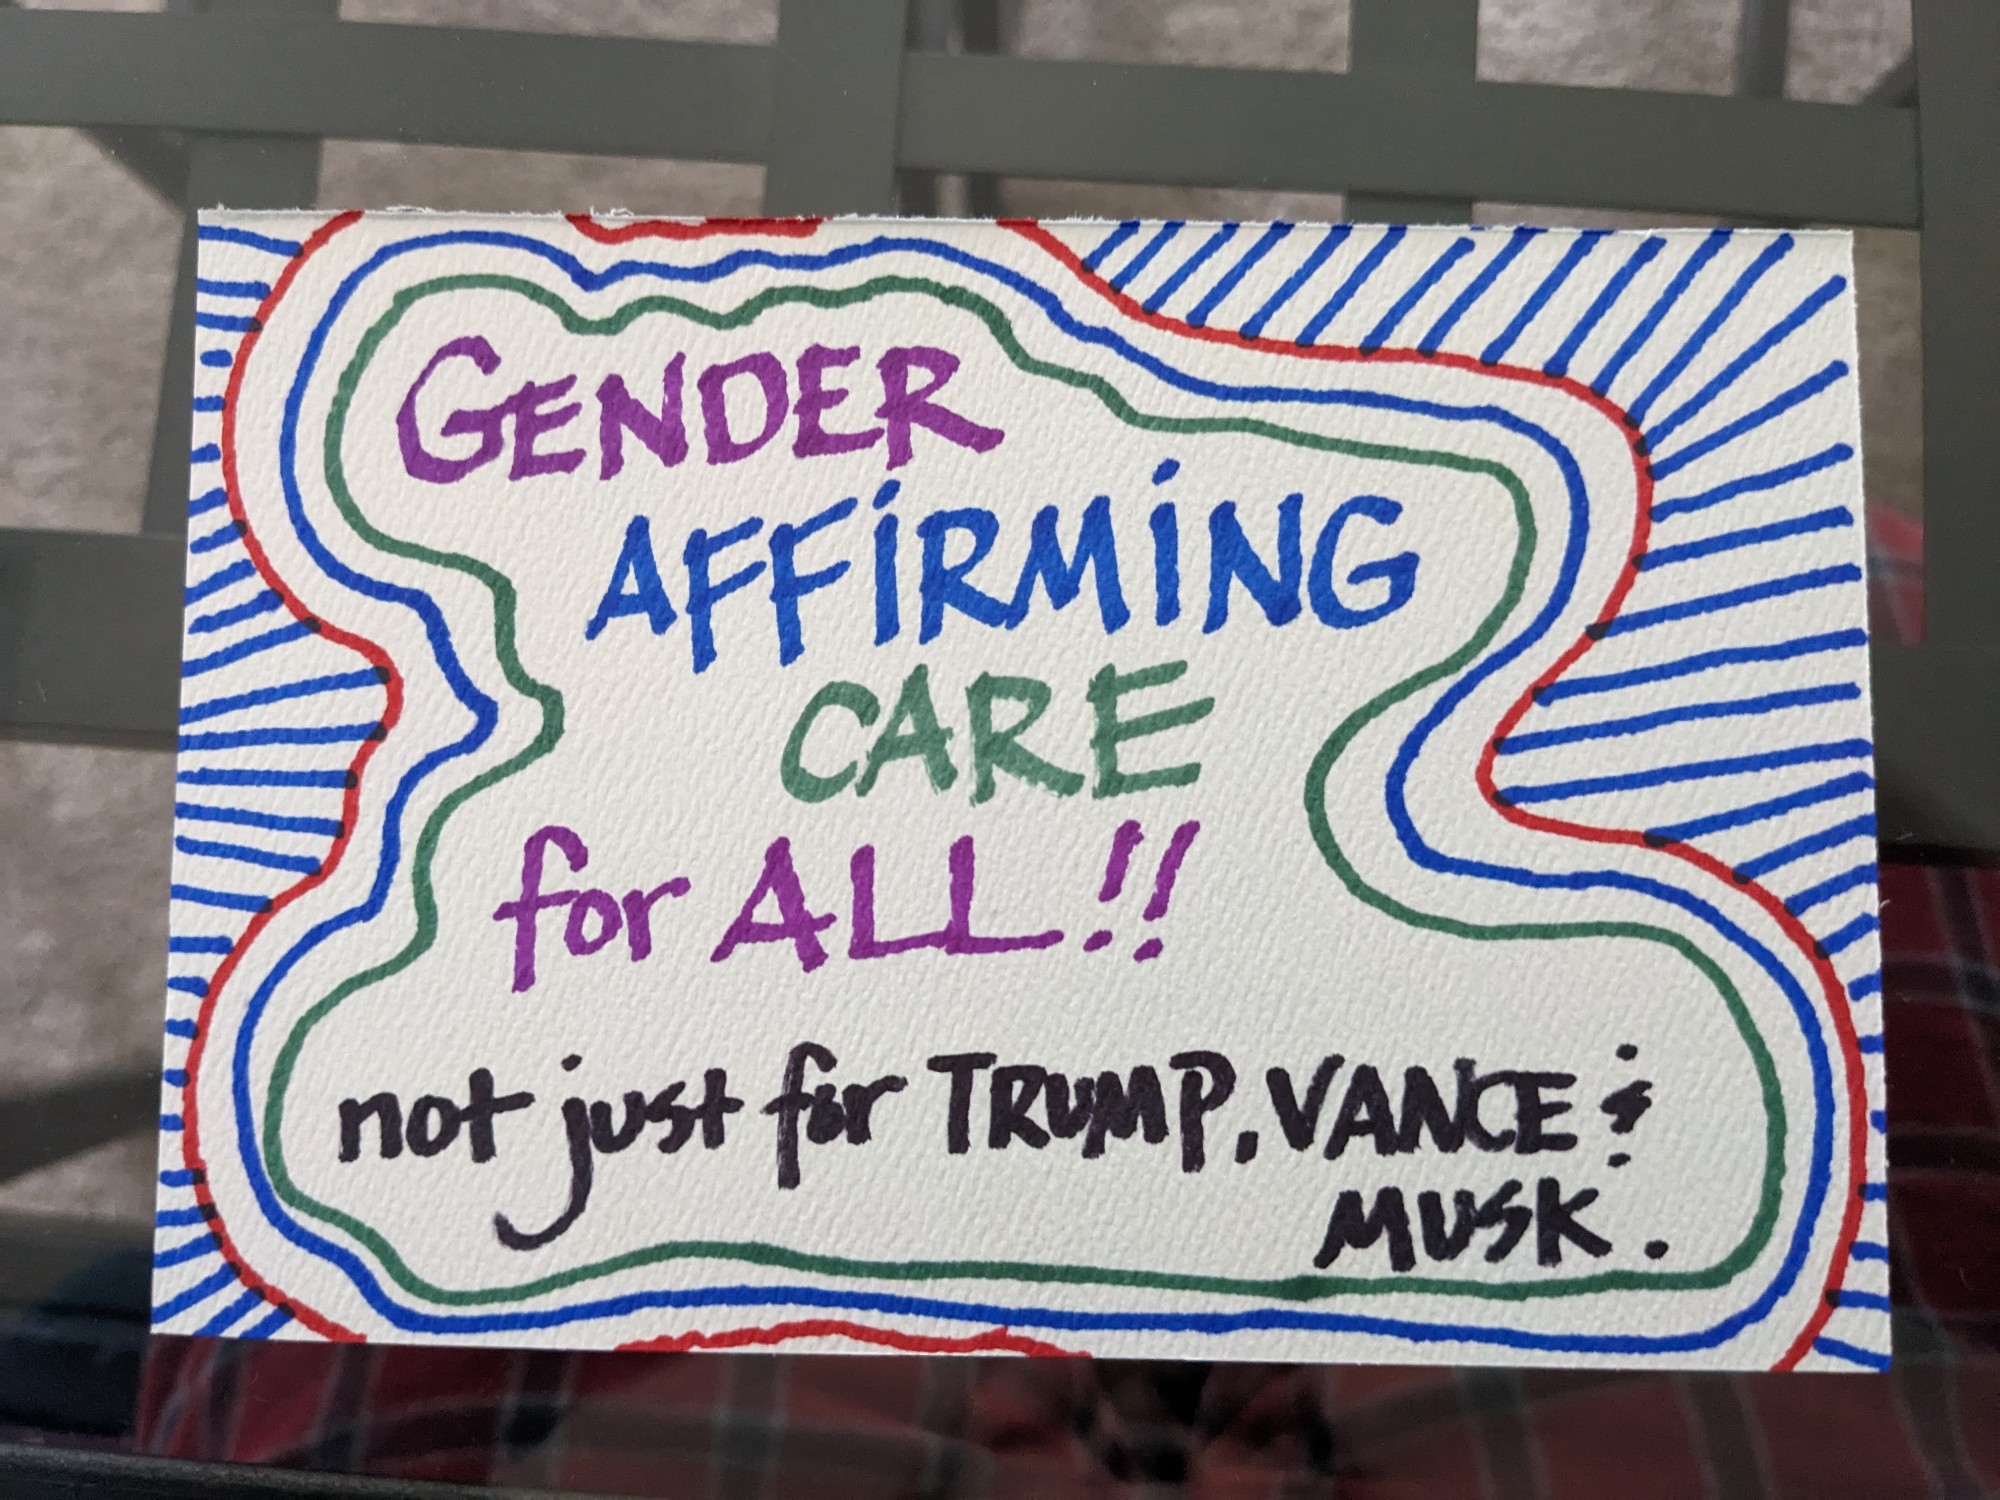 GENDER
AFFiRMiNG
CARE
for ALL!!
not just for TRUMP, VANCE &
MUSK.